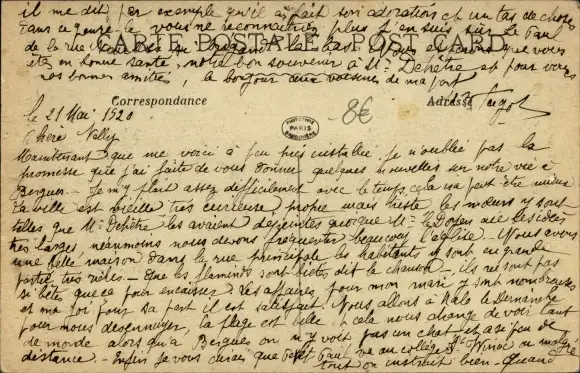 il me dit par exemple qu'il a fait son adoration et un tas de choses
dans ce genre là vous ne reconnaîtrez plus
de la rue
CARTE POSTALE POST CARD
êtes en bonne santé, notre bon souvenir à Mr Dehêtre et pour vous
nos bonnes amitiés, le bonjour aux voisines de ma part
Correspondance
Adresse
le 21 Mai 1920
8€
PARIS
Chère Nelly
Maintenant que me voici à peu près installée, je n'oublie pas la
promesse que j'ai faite de vous donner quelques nouvelles sur notre vie à
Bergues. Je m'y plait assez difficilement avec le temps cela ira peut être mieux
la ville est vieille très curieuse propre mais reste les mœurs y sont
telles que Mr Dehêtre les avaient dépeintes quoique Mr le Doyen aie les idées
très larges néanmoins nous devons fréquenter beaucoup l'église. Nous avons
une belle maison dans la rue principale les habitants y sont en grande
partie très riches - Que les flaminds sont bêtes dit la chanson - ils ne sont pas
si bêtes que ce pour encaisser. Les affaires pour mon mari y sont nombreuses
et ma foi pour sa part il est satisfait. Nous allons à Malo le Dimanche
pour nous desennuyer, la plage est belle et cela nous change de voir tant
de monde alors qu'à Bergues on n'y voit pas un chat et a si peu de
distance - Enfin je vous dirais que Petit Paul va au collège St Winoc ou malgré
tout on instruit bien - Quand